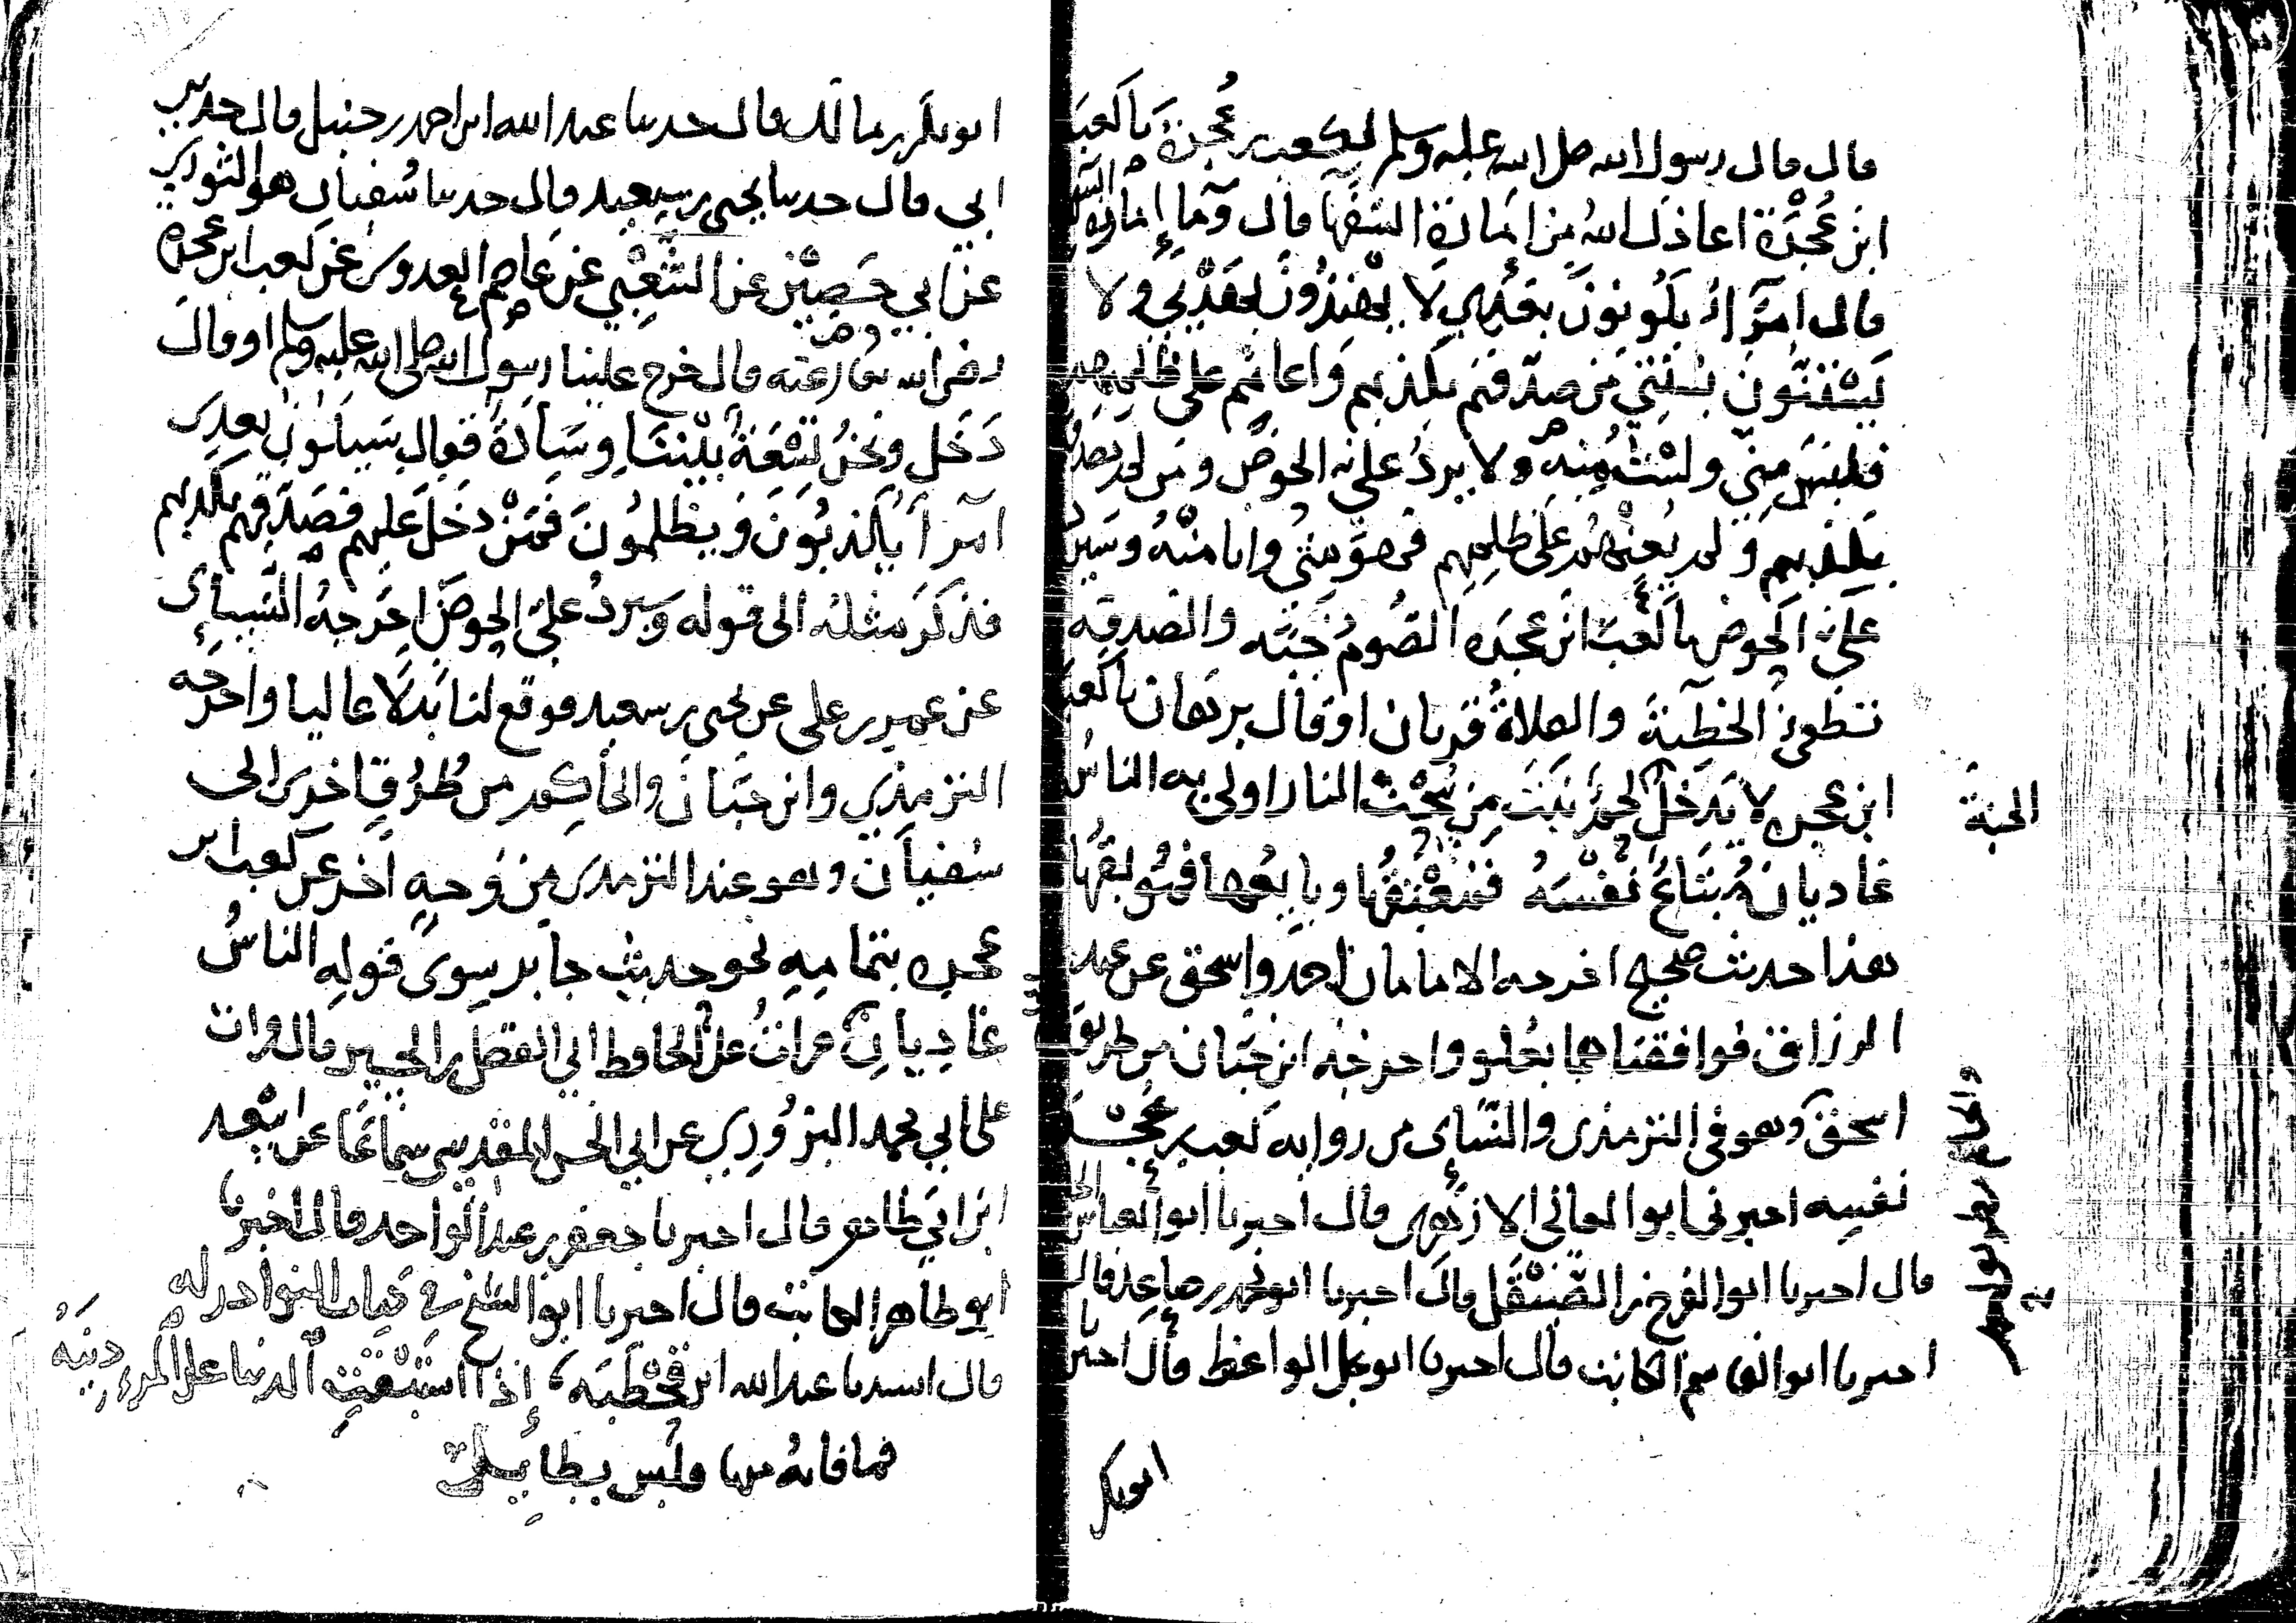 قال قال رسول الله صلى الله عليه وسلم لكعب بن عجرة يا كعب
ابن عجرة اعاذك الله من امارة السفها قال وما إمارة السفها
قال امرآ يكونون بعدي لا يهتدون بهديي ولا
يستنون بسنتي من صدقهم بكذبهم واعانهم على ظلمهم
فليس مني ولست منه ولا يرد على الحوض ومن لم يصدقهم
بكذبهم ولم يعنهم على ظلمهم فهو مني وانا منه وسيرد
على الحوض يا كعب ابن عجره الصوم جنه والصدقه
تطفئ الخطيئة والصلاة قربان او قال برهان يا كعب
ابن عجره لا يدخل الجنة لحم نبت من سحت النار اولى به الناس
غاديان فمبتاع نفسه فمعتقها وبايعها فموبقها
هذا حديث صحيح اخرجه الامامان احمد واسحق عن عبد
الرزاق فوافقناهما بعلو واخرجه ابن حبان من طريق
اسحق وهو في الترمذي والنساي من رواية كعب بن عجرة
نفسه اخبرني ابوا المعالي الازهري قال اخبرنا ابوا العباس
قال اخبرنا ابوا الفرج بن الصيقل قال اخبرنا ابو محمد بن صاعد قال
اخبرنا ابوا القاسم الكاتب قال اخبرنا ابو علي الواعظ قال اخبرنا
ابو بكر
ابو بكر بن مالك قال حدثنا عبد الله ابن احمد بن حنبل قال حدثني
ابي قال حدثنا يحيى بن سعيد قال حدثنا سفيان هو الثوري
عن ابي حصين عن الشعبي عن عاصم العدوي عن كعب ابن عجره
رضي الله عنه قال خرج علينا رسول الله صلى الله عليه وسلم او قال
دخل ونحن تسعة بيننا وسادة فقال سيكون بعدي
امرآ يكذبون ويظلمون فمن دخل عليهم فصدقهم بكذبهم
فذكر مثله الى قوله وسيرد على الحوض اخرجه النساي
عن عمرو بن علي عن يحيى بن سعيد فوقع لنا بدلا عاليا واخرجه
الترمذي وابن حبان والحاكم من طرق اخرى الى
سفيان وهو عند الترمذي من وجه اخر عن كعب ابن
عجره بتمامه نحو حديث جابر سوى قوله الناس
غاديان قرات على الحافظ ابي الفضل بن الحسين قال قرات
على ابي محمد البزوري عن ابي الحسن المقدسي سماعا عن اسعد
ابن ابي طاهر قال اخبرنا جعفر بن عبد الواحد قال اخبرنا
ابو طاهر الكاتب قال اخبرنا ابوا الشيخ في كتاب النوادر له
قال انشدنا عبد الله ابن قحطبه إذا استبقت الدنيا على المرء دينه
فما فاته منها وليس بطايل